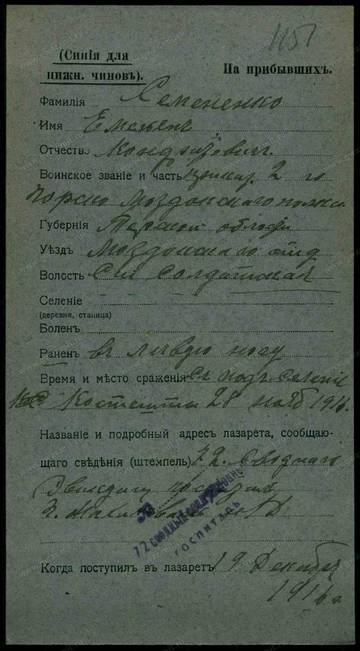 1151
(Синія для
нижн. чиновъ).
На прибывшихъ.
Фамилія Семененко
Имя Емельянъ
Отчество Кондратович.
Воинское званіе и часть 2 го
Горско Моздокскаго полка
Губернія Терской области
Уѣздъ Моздокскаго отд
Волость Ст. Солдатская
Селеніе
(деревня, станица)
Боленъ
Раненъ в лѣвую ногу
Время и мѣсто сраженія подъ
28 1916
Названіе и подробный адресъ лазарета, сообщаю-
щаго свѣдѣнія (штемпель) 72 Сводного
72 СВОДНЫЙ
ГОСПИТАЛЬ
Когда поступилъ въ лазаретъ 19 Декабря
1916 г